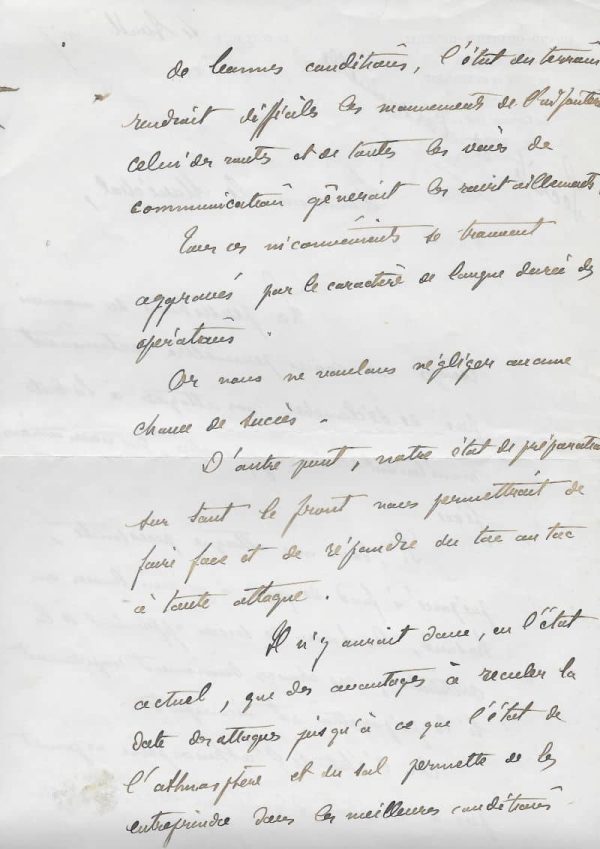 de bonnes conditions, l'état des terrains
rendrait difficiles les mouvements de l'infanterie
celui des routes et de toutes les voies de
communication gênerait les ravitaillements,
Tous ces inconvénients se trouvent
aggravés par le caractère de longue durée des
opérations.
Or nous ne voulons négliger aucune
chance de succès.
D'autre part, notre état de préparation
sur tout le front nous permettrait de
faire face et de répondre du tac au tac
à toute attaque.
Il n'y aurait donc, en l'état
actuel, que des avantages à reculer la
date des attaques jusqu'à ce que l'état de
l'athmosphère et du sol permette de les
entreprendre dans les meilleures conditions